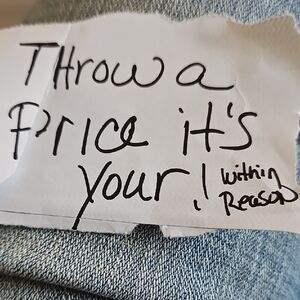 THrow a
Price it's
your! within
Reason